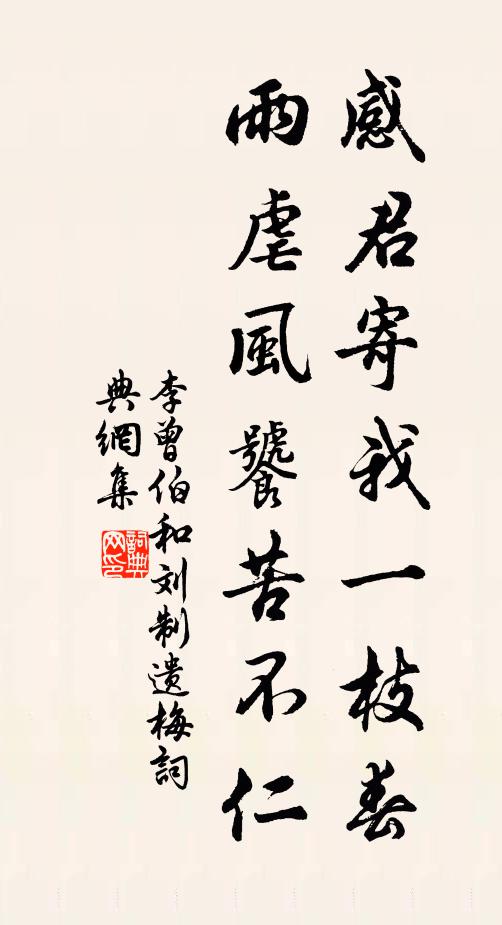 感君寄我一枝春
雨虐風饕苦不仁
李曾伯和刘制遗梅詞
典網集
詞典网印